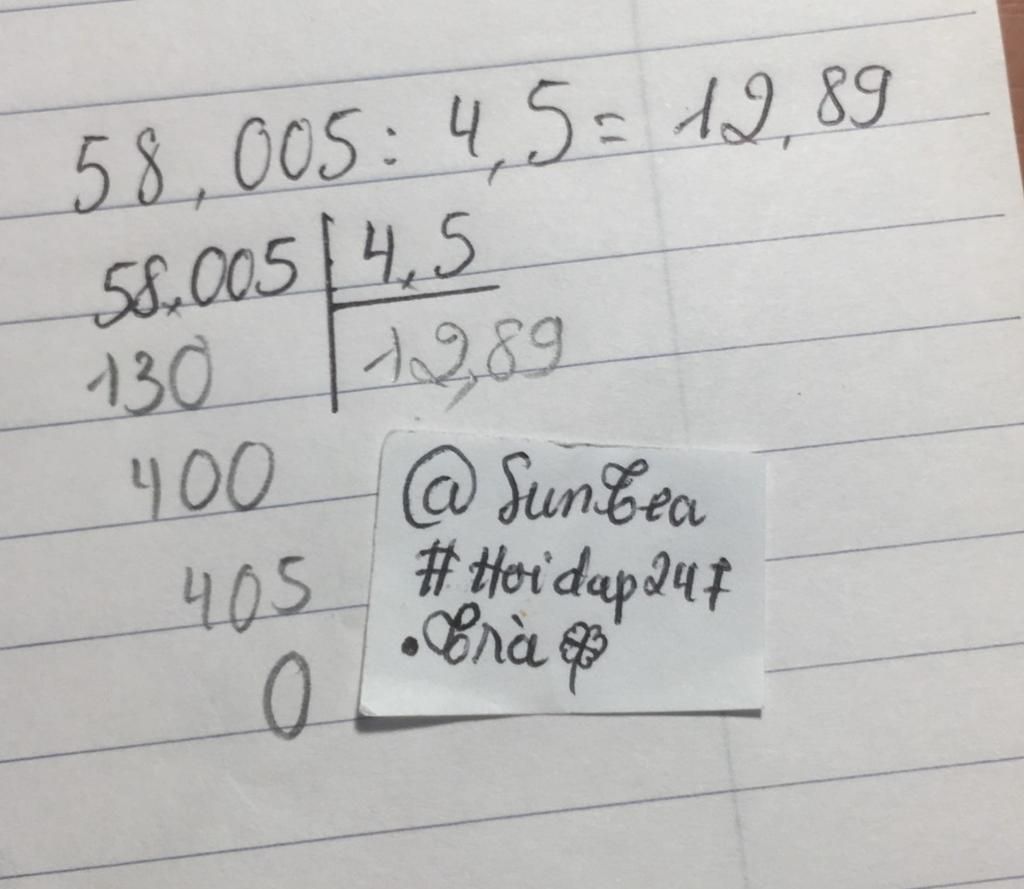 58,005 : 4,5 = 12,89
58,005 4,5
130 12,89
400
405
0
@SunTea
#Hoidap247
.Trà